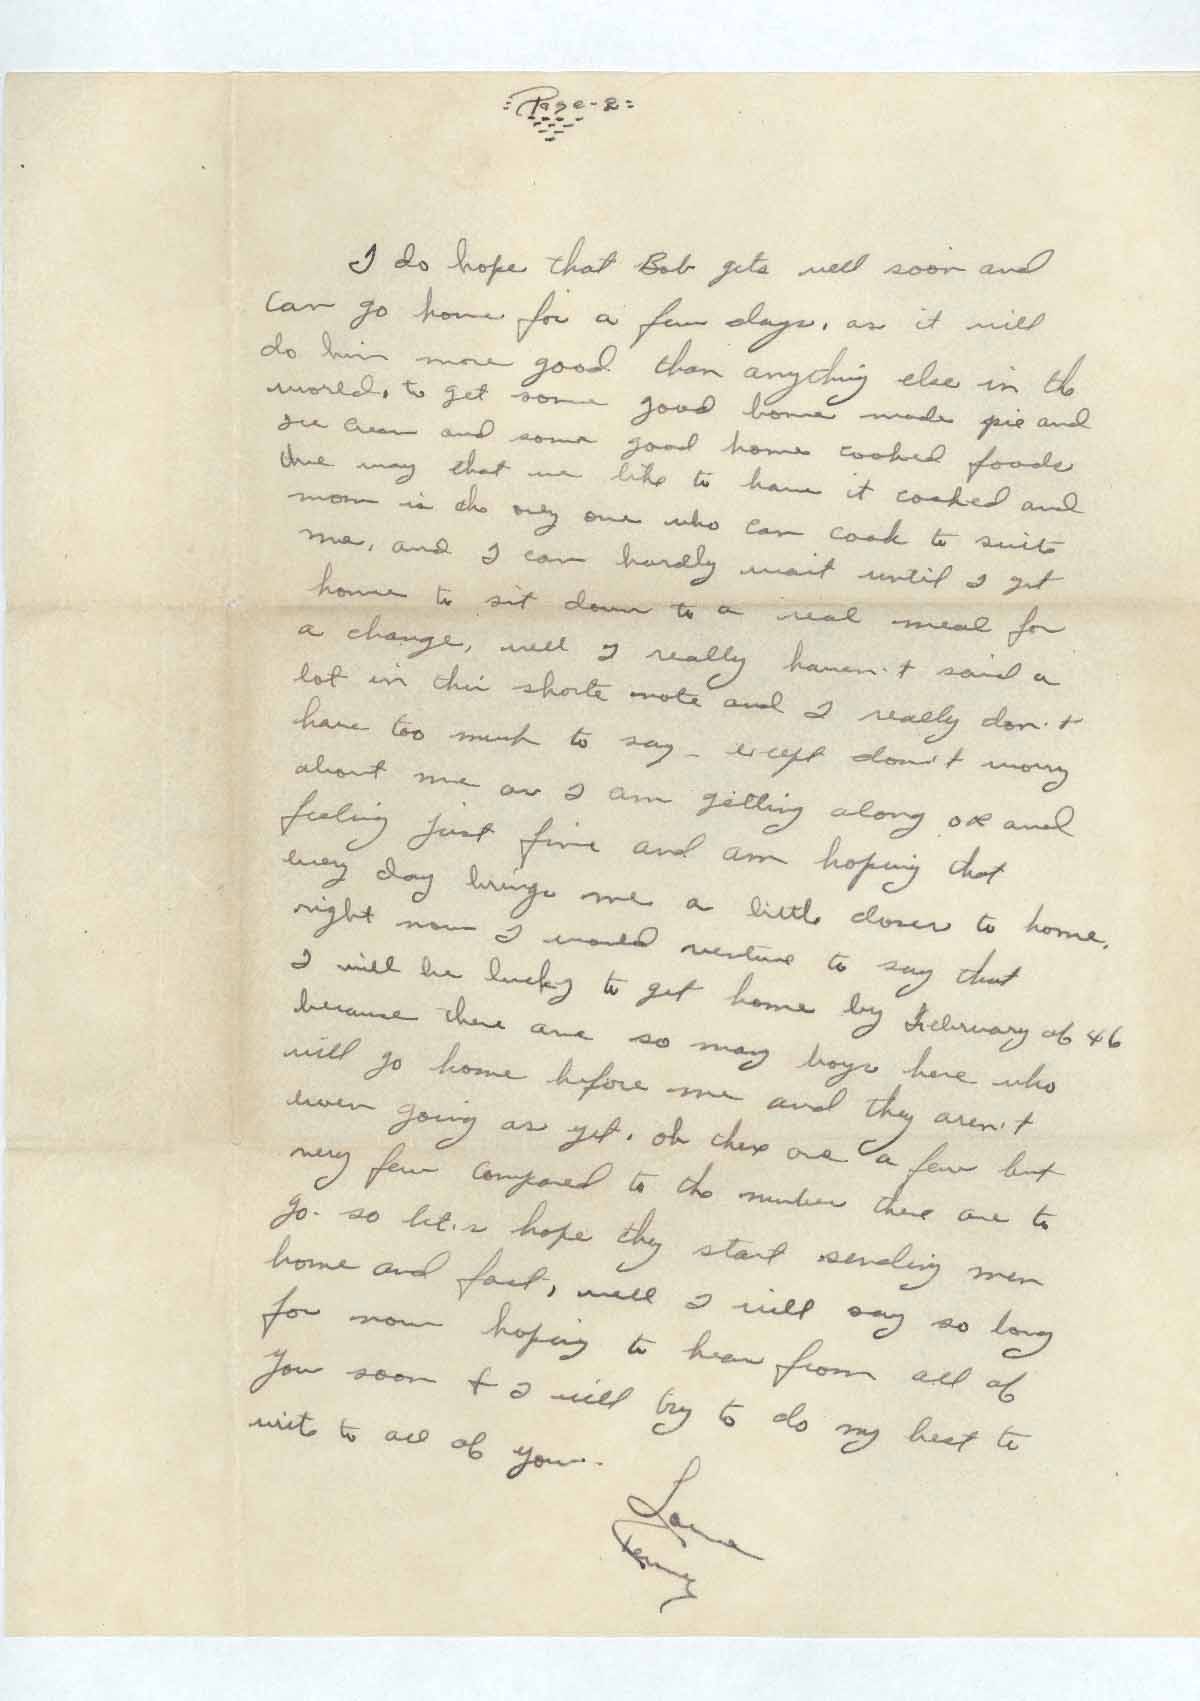 :Page-2:
I do hope that Bob gets well soon and
can go home for a few days, as it will
do him more good than anything else in the
world, to get some good home made pie and
ice cream and some good home cooked foods
the way that we like to have it cooked and
mom is the ony one who can cook to suite
me, and I can hardly wait until I get
home to sit down to a real meal for
a change, well I really haven't said a
lot in this shorte note and I really don't
have too much to say - except don't worry
about me as I am getting along ok and
feeling just fine and am hoping that
every day brings me a little closer to home,
right now I would venture to say that
I will be lucky to get home by February of 46
because there are so many boys here who
will go home before me and they aren't
even going as yet. oh there are a few but
very few compared to the number there are to
go. so let's hope they start sending men
home and fast, well I will say so long
for now hoping to hear from all of
you soon & I will try to do my best to
write to all of you.
Love